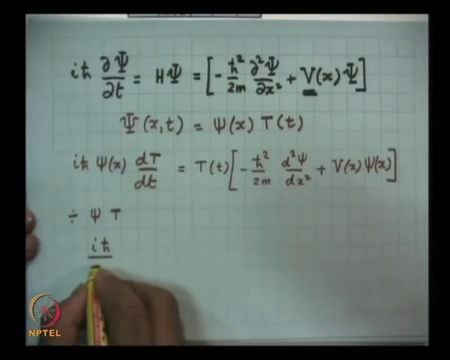 iħ ∂Ψ/∂t = HΨ = [-ħ²/2m ∂²Ψ/∂x² + V(x)Ψ]
Ψ(x,t) = ψ(x) T(t)
iħ ψ(x) dT/dt = T(t)[-ħ²/2m d²ψ/dx² + V(x)ψ(x)]
÷ ψ T
iħ
NPTEL